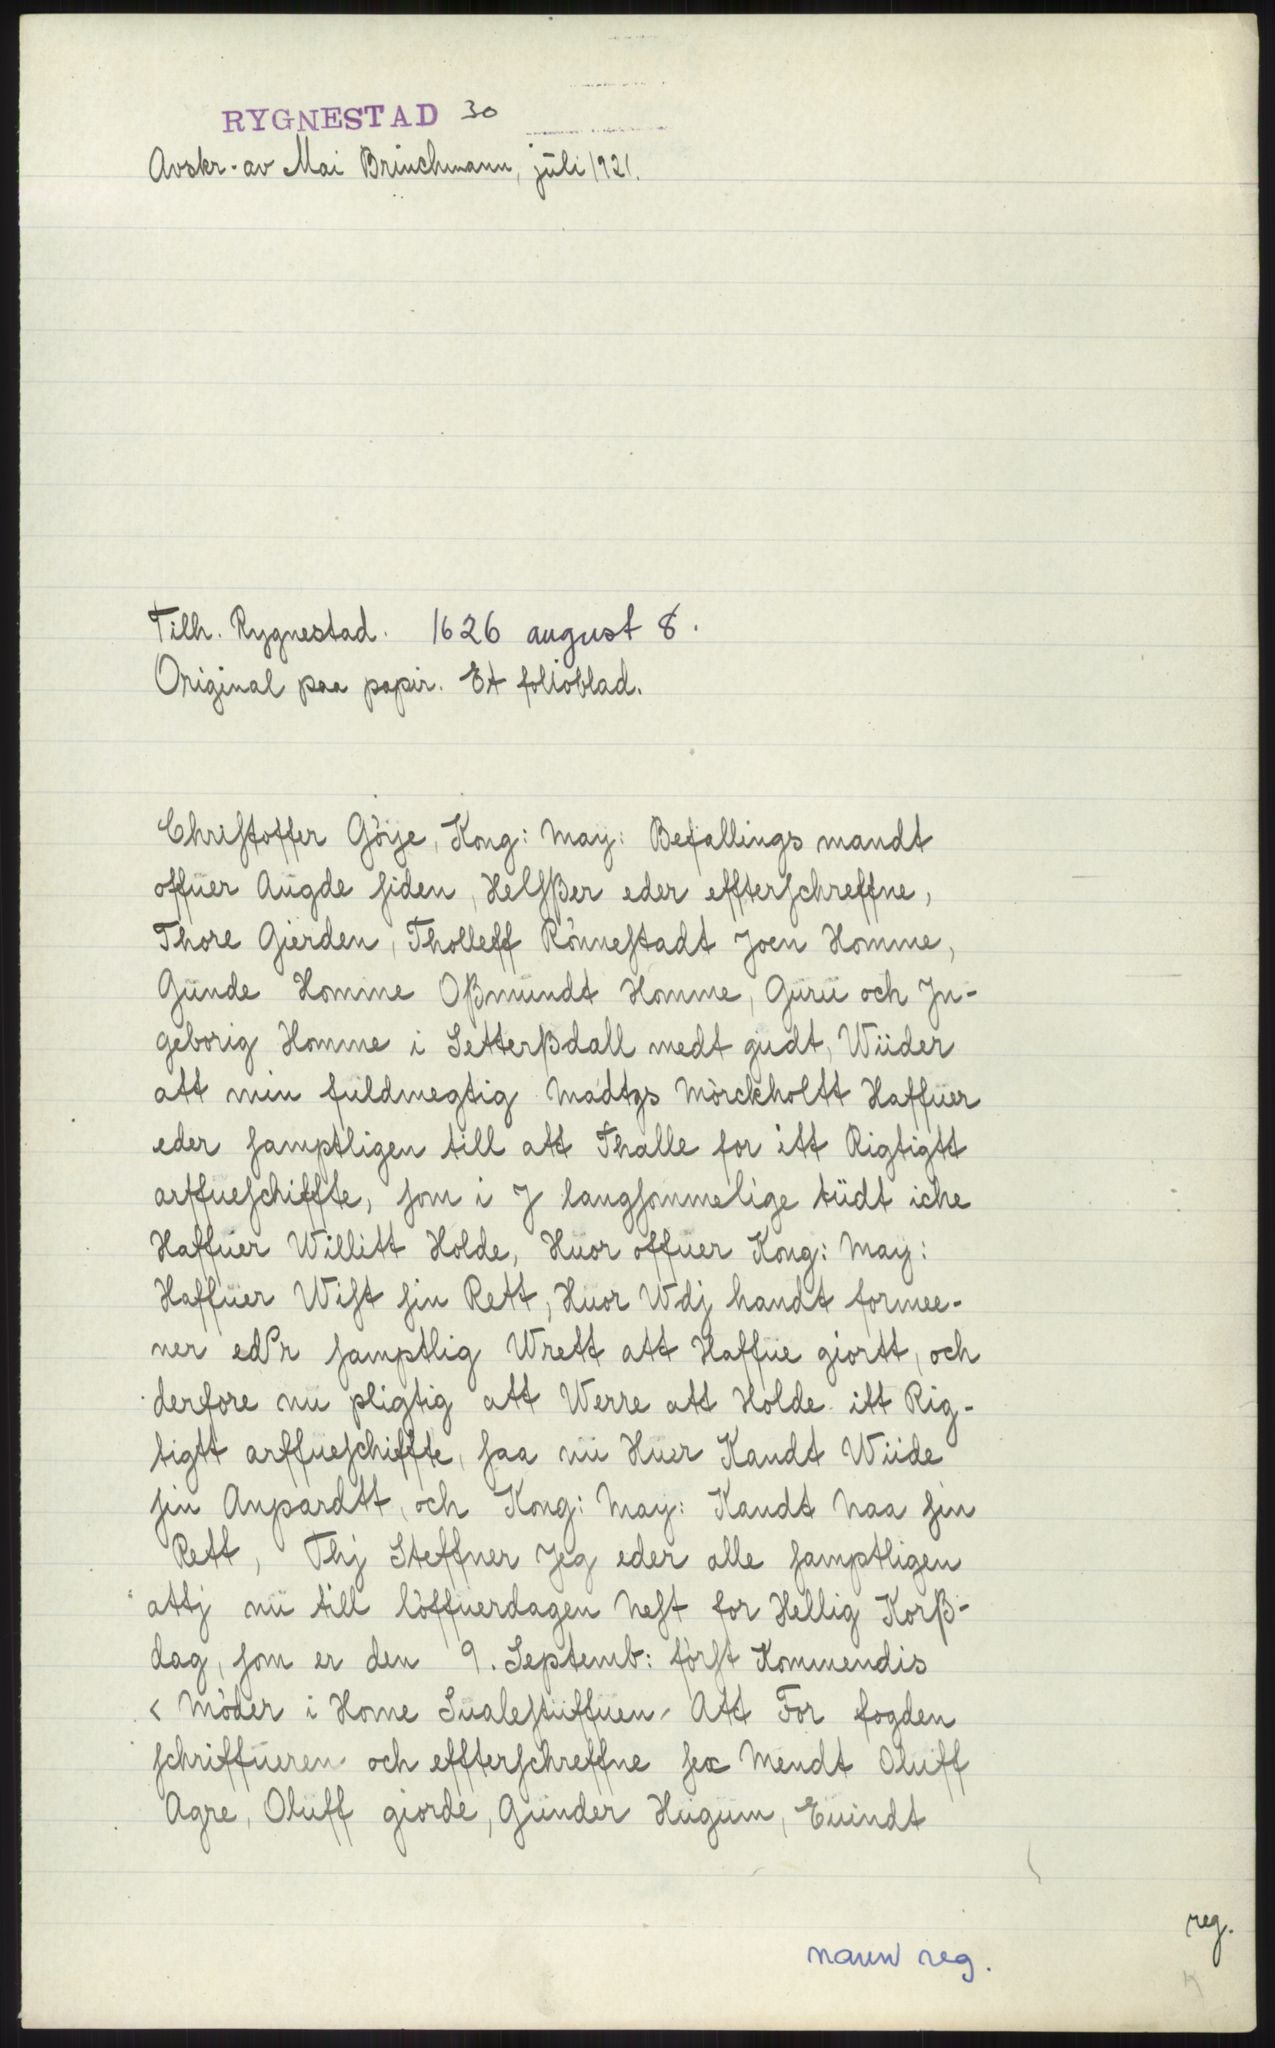 RYGNESTAD 30
Avskr. av Mai Brinchmann, juli 1921.
Tilh. Rygnestad. 1626 august 8.
Original paa papir. Et folioblad.
Christoffer Göÿe, Kong: Maÿ: Befallings mandt
offüer Aügde siden, Helsßer eder effterschreffne,
Thore Gierden, Tholleff Rönnestadt Joen Homme,
Günde Homme Oßmündt Homme, Gürü och In-
geborig Homme i Setterßdall medt güdt, Wiider
att min füldmegtig Madtzs Mörckholtt Haffüer
eder samptligen till att Thalle for itt Rigtigtt
arffüeschiffte, som i J langsommelige tiidt icke
Haffüer Willitt Holde, Hüor offüer Kong: Maÿ:
Haffüer Mist sin Rett, Hüor Wdj handt formee-
ner eder samptlig Wrett att Haffüe giortt, och
derfore nü pligtig att Werre att Holde itt Rig-
tigtt arffüeschiffte, saa nü Hüer Kandt Wiide
sin Anpardtt, och Kong: Maÿ: Kandt Naa sin
Rett, Thj Steffner Jeg eder alle samptligen
attj nü till löffüerdagen Nest for Hellig Korß-
dag, som er den 9. Septemb: först Kommendis
< Möder i Home Süalestüffüen, Att For fogden
schriffüeren och effterschreffne sex Mendt Olüff
Agre, Olüff giorde, Günder Hügüm, Eüindt
navn reg.
reg.